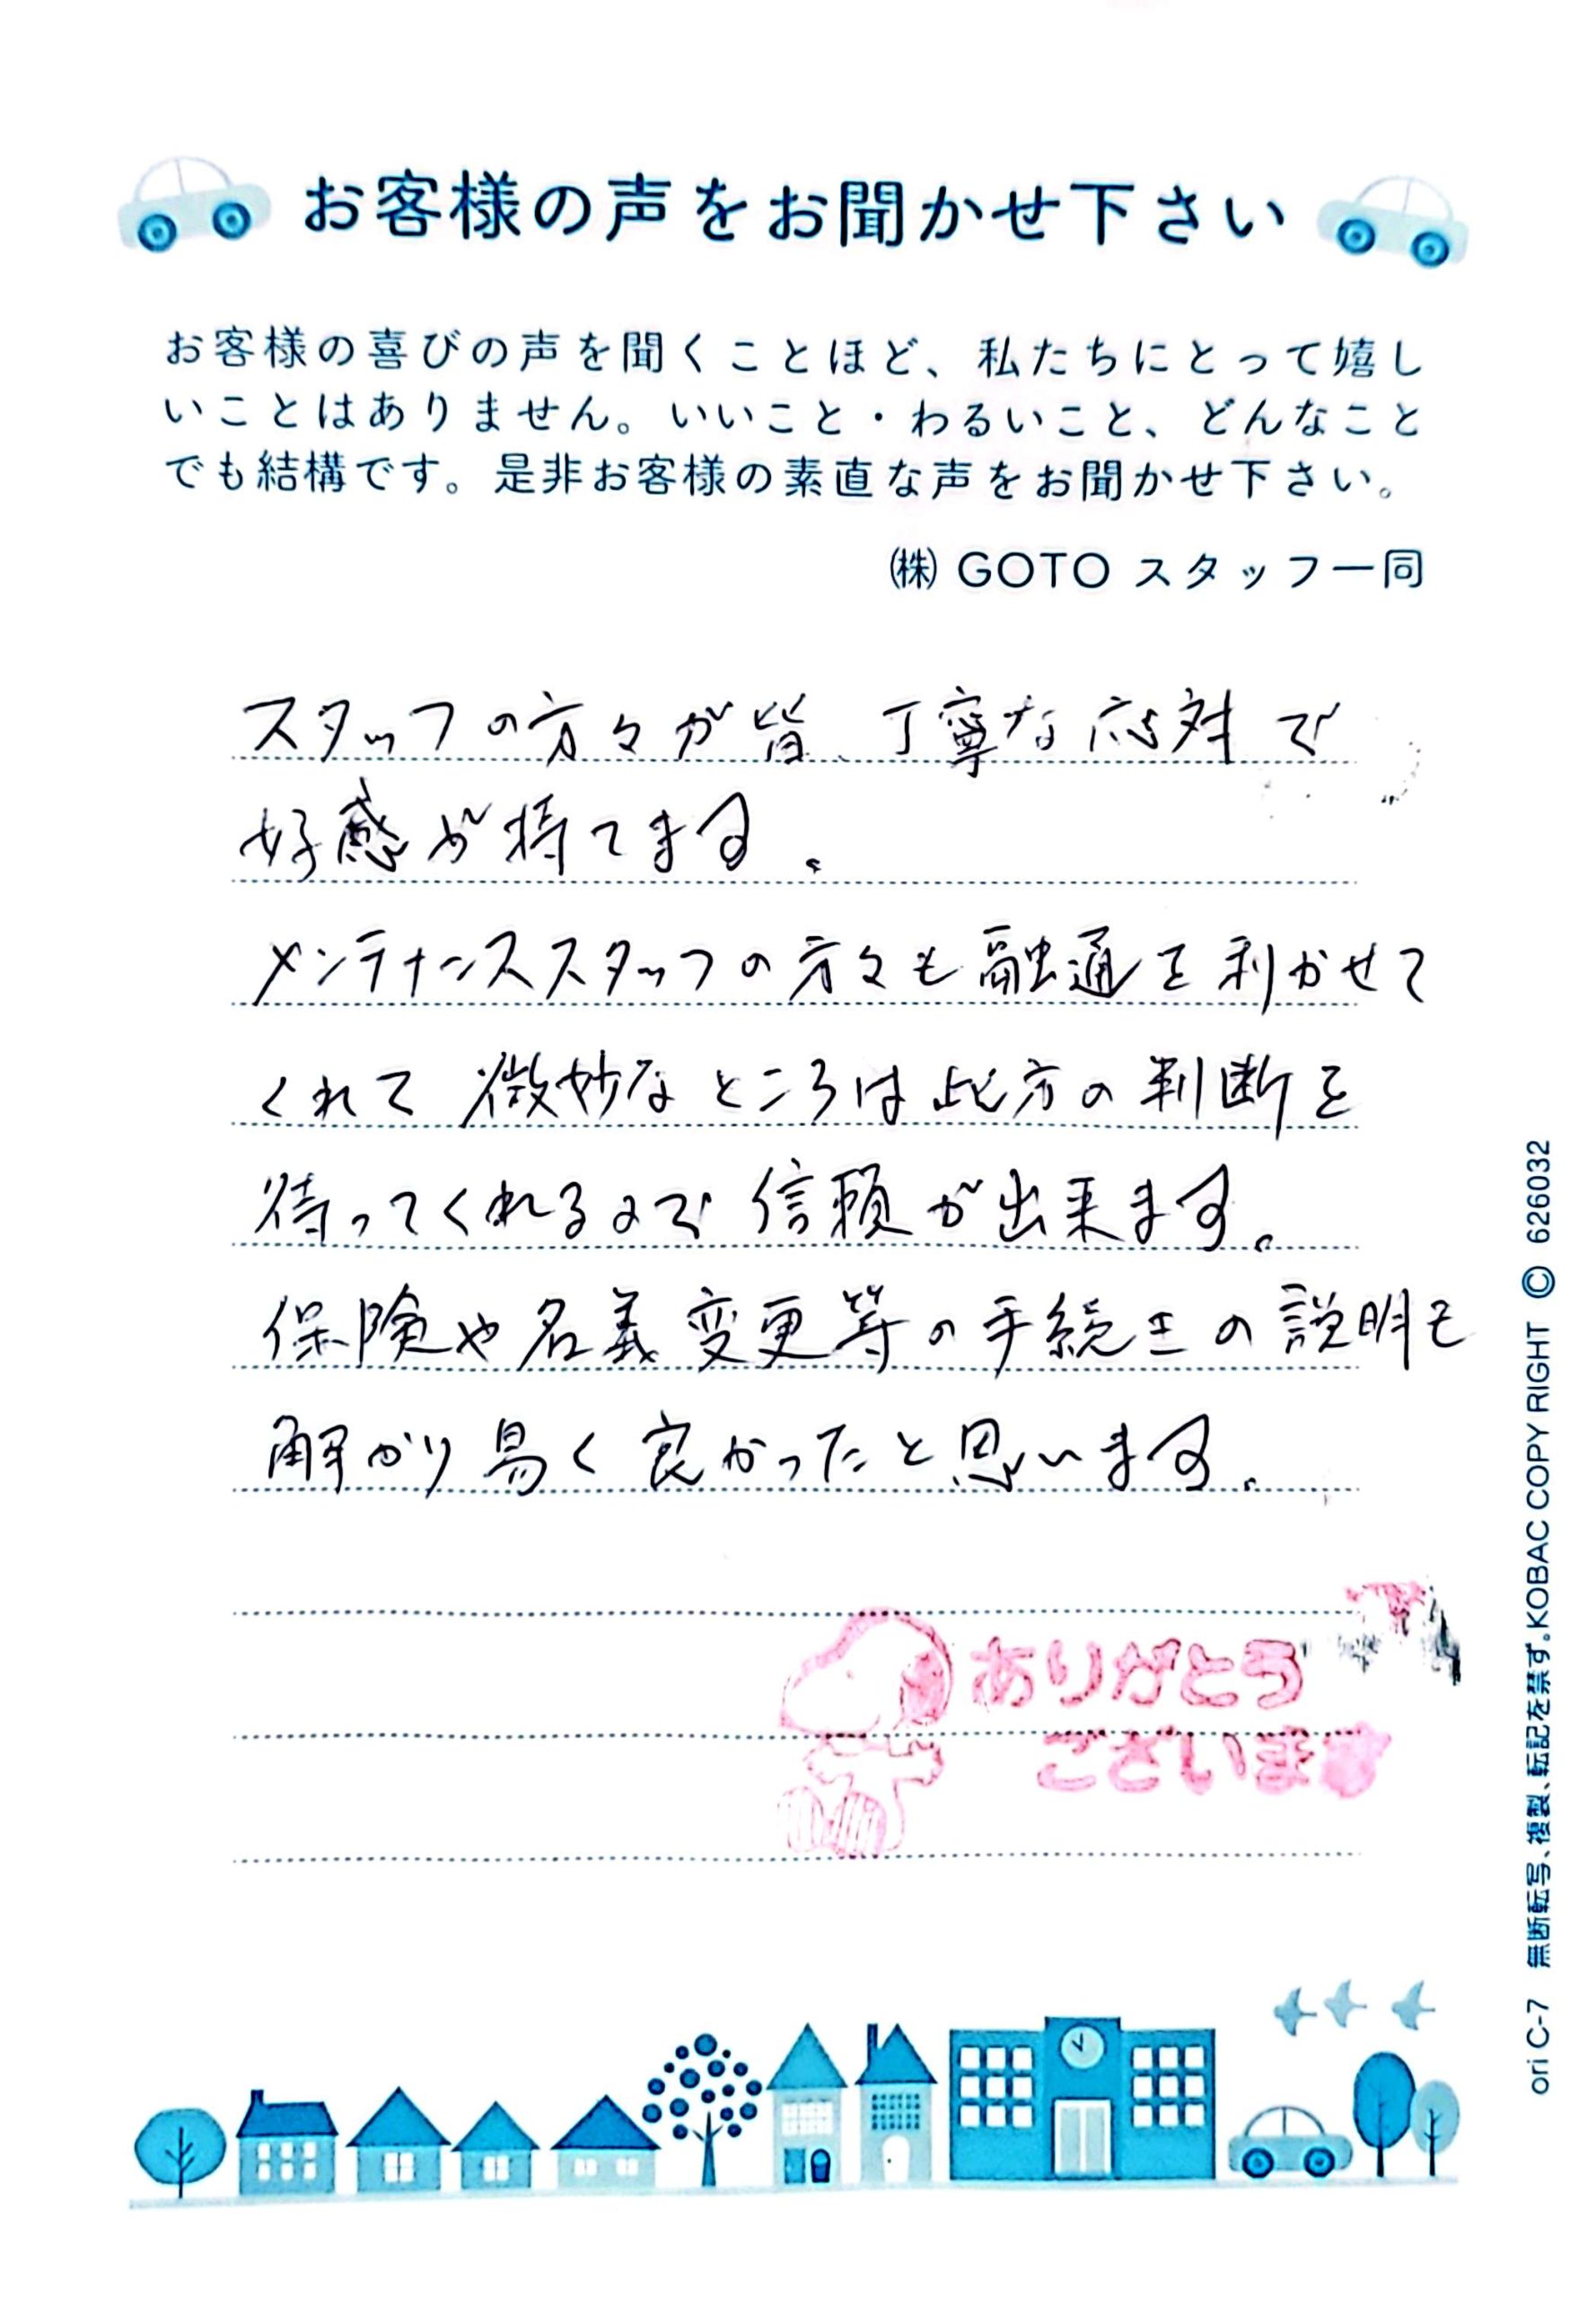 お客様の声をお聞かせ下さい
お客様の喜びの声を聞くことほど、私たちにとって嬉し
いことはありません。いいこと・わるいこと、どんなこと
でも結構です。是非お客様の素直な声をお聞かせ下さい。
㈱ GOTO スタッフ一同
スタッフの方々が皆、丁寧な応対で
好感が持てます。
メンテナンススタッフの方々も融通を利かせて
くれて 微妙なところは此方の判断を
待ってくれるので 信頼が出来ます。
保険や名義変更等の手続きの説明も
解かり易く良かったと思います。
ありがとう
ございます
ori C-7 無断転写、複製、転記を禁ず。KOBAC COPY RIGHT © 626032